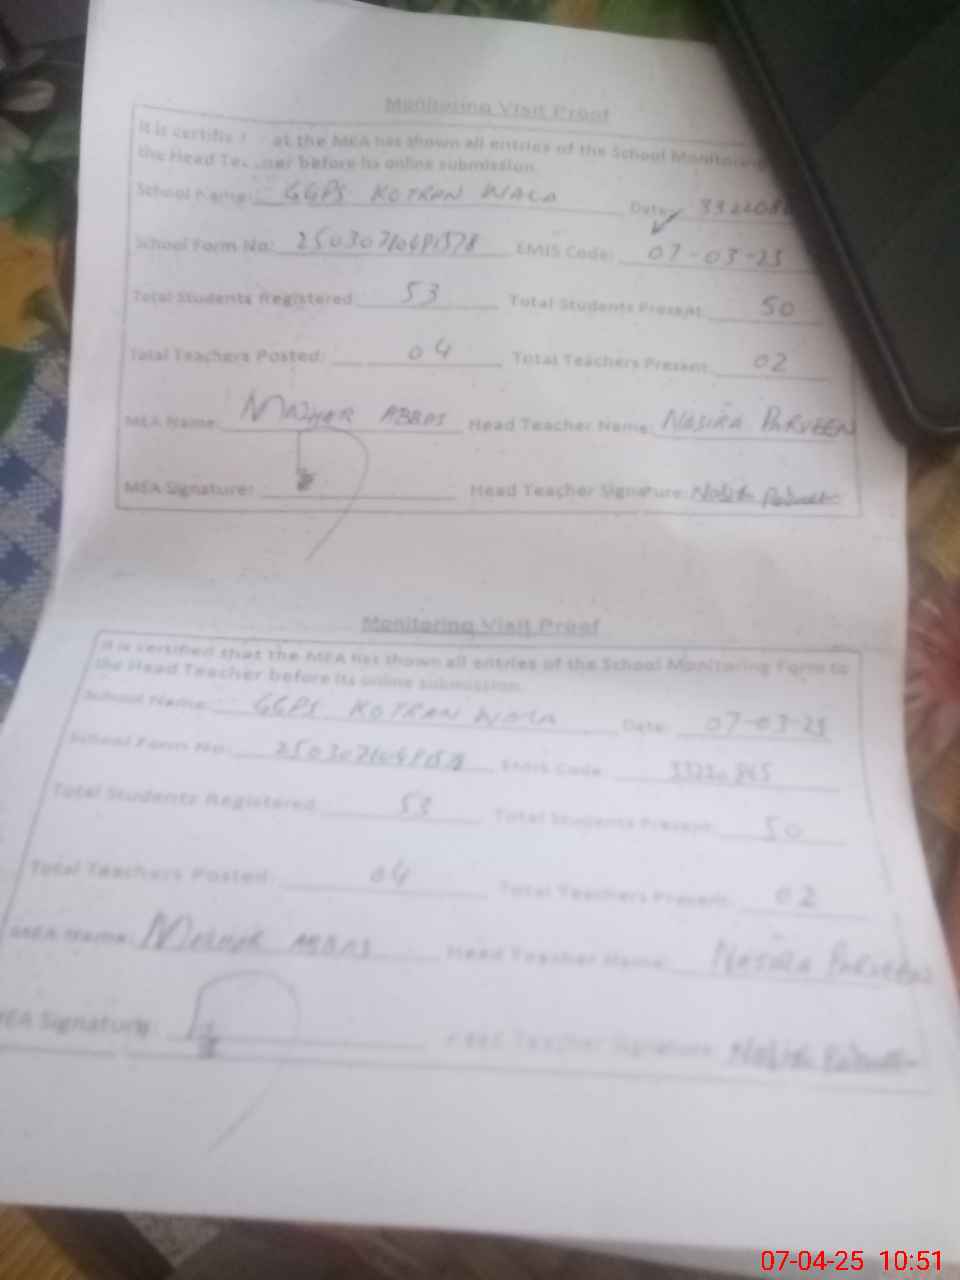 Monitoring Visit Proof
It is certifie at the MEA has shown all entries of the School Monitoring
the Head Teacher before its online submission.
School Name: GGPS KOTRAN WALA Date:
School Form No: EMIS Code: 07-03-25
Total Students Registered: 53 Total Students Present: 50
Total Teachers Posted: 04 Total Teachers Present: 02
MEA Name: MAZHAR ABBAS Head Teacher Name: NASIRA PARVEEN
MEA Signature: Head Teacher Signature:
Monitoring Visit Proof
It is certified that the MEA has shown all entries of the School Monitoring Form to
the Head Teacher before its online submission.
School Name: GGPS KOTRAN WALA Date: 07-03-25
School Form No: EMIS Code:
Total Students Registered: 53 Total Students Present: 50
Total Teachers Posted: 04 Total Teachers Present: 02
MEA Name: MAZHAR ABBAS Head Teacher Name: NASIRA PARVEEN
MEA Signature: Head Teacher Signature:
07-04-25 10:51